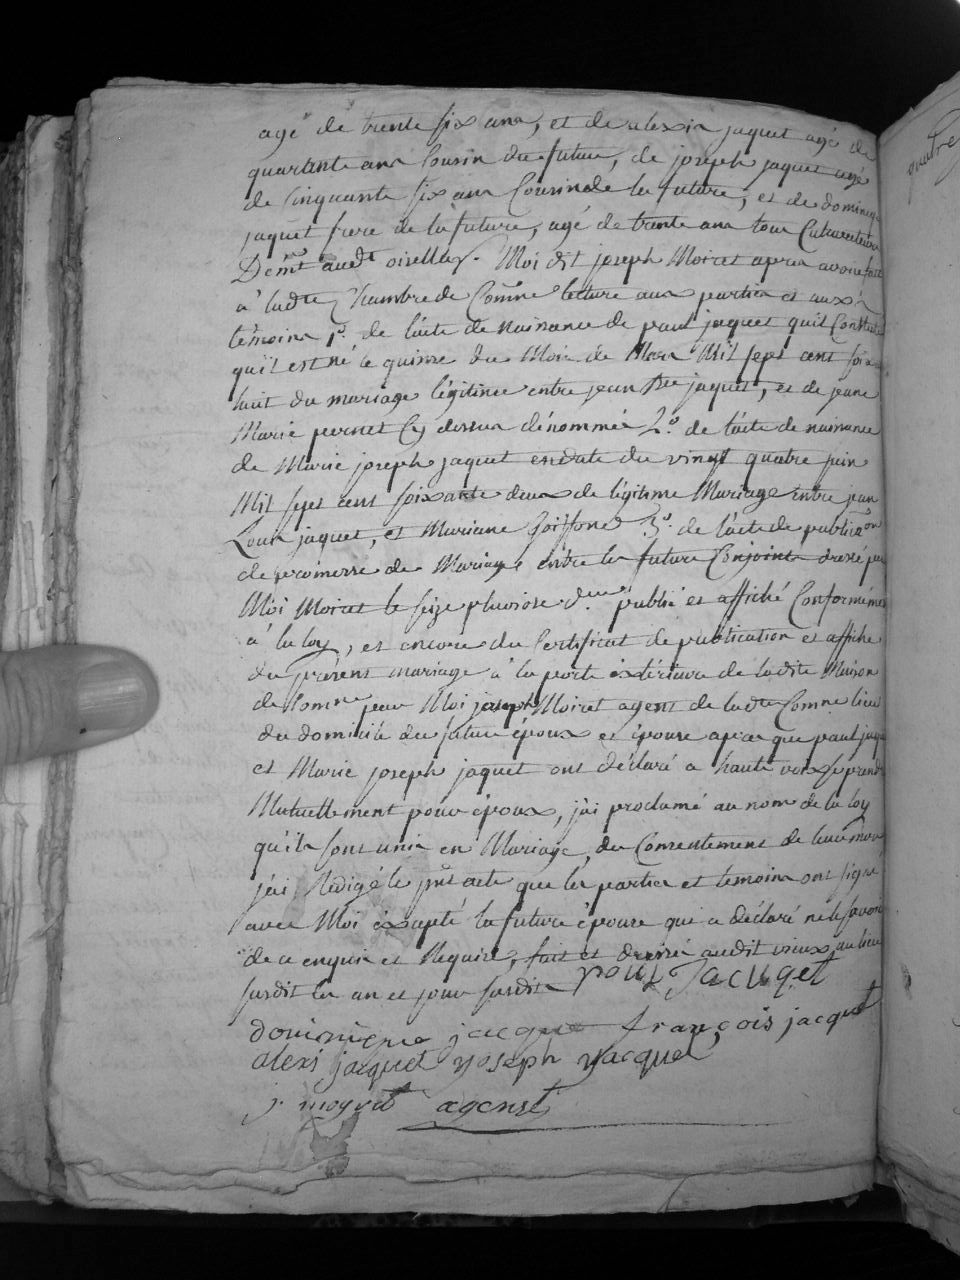 agé de trente six ans, et de alexis jaquet agé de
quarante ans Cousin du futur, de joseph jaquet agé
de cinquante six ans Cousin de la future, et de dominique
jaquet frere de la future, agé de trente ans tous Cultivateurs
Demt audt oisellay. Moi dit joseph Moiret apres avoir fait
à ladte Chambre de Comne lecture aux parties et aux
témoins 1°. de l'acte de naissance de paul jaquet quil Constate
qu'il est né le quinze du Mois de Mars Mil sept cent soixante
huit du mariage légitime entre jean Bte jaquet, et de jeane
Marie pernet Cy dessus dénommée 2°. de l'acte de naissance
de Marie joseph jaquet en date du vingt quatre juin
Mil sept cent soixante deux de légitime Mariage entre jean
Louis jaquet, et Mariane 3°. de l'acte de publicaon
de promesse de Mariage entre les futurs Conjoints dressé par
Moi Moiret le seize pluviose der publié et affiché Conformément
à la loy, et encore du Certificat de publication et affiche
du présent mariage à la porte éxtérieure de ladite Maison
de Comne par Moi joseph Moiret agent de ladte Comne lieu
du domicile du futur époux et épouse apres que paul jaquet
et Marie joseph jaquet ont déclaré a haute voix se prendre
Mutuellement pour époux, j'ai proclamé au nom de la loy
qu'ils sont unis en Mariage, du Consentement de leurs
j'ai Rédigé le pnt acte que les parties et temoins ont signé
avec Moi éxcepté la future épouse qui a déclaré ne le savoir
de ce enquis et Requise, fait et dressé audit au lieu
susdit les an et jour susdits poul Jacuqet
dominique jacque françois jacquet
alexi jacquet joseph jacquet
j. moyret agenst